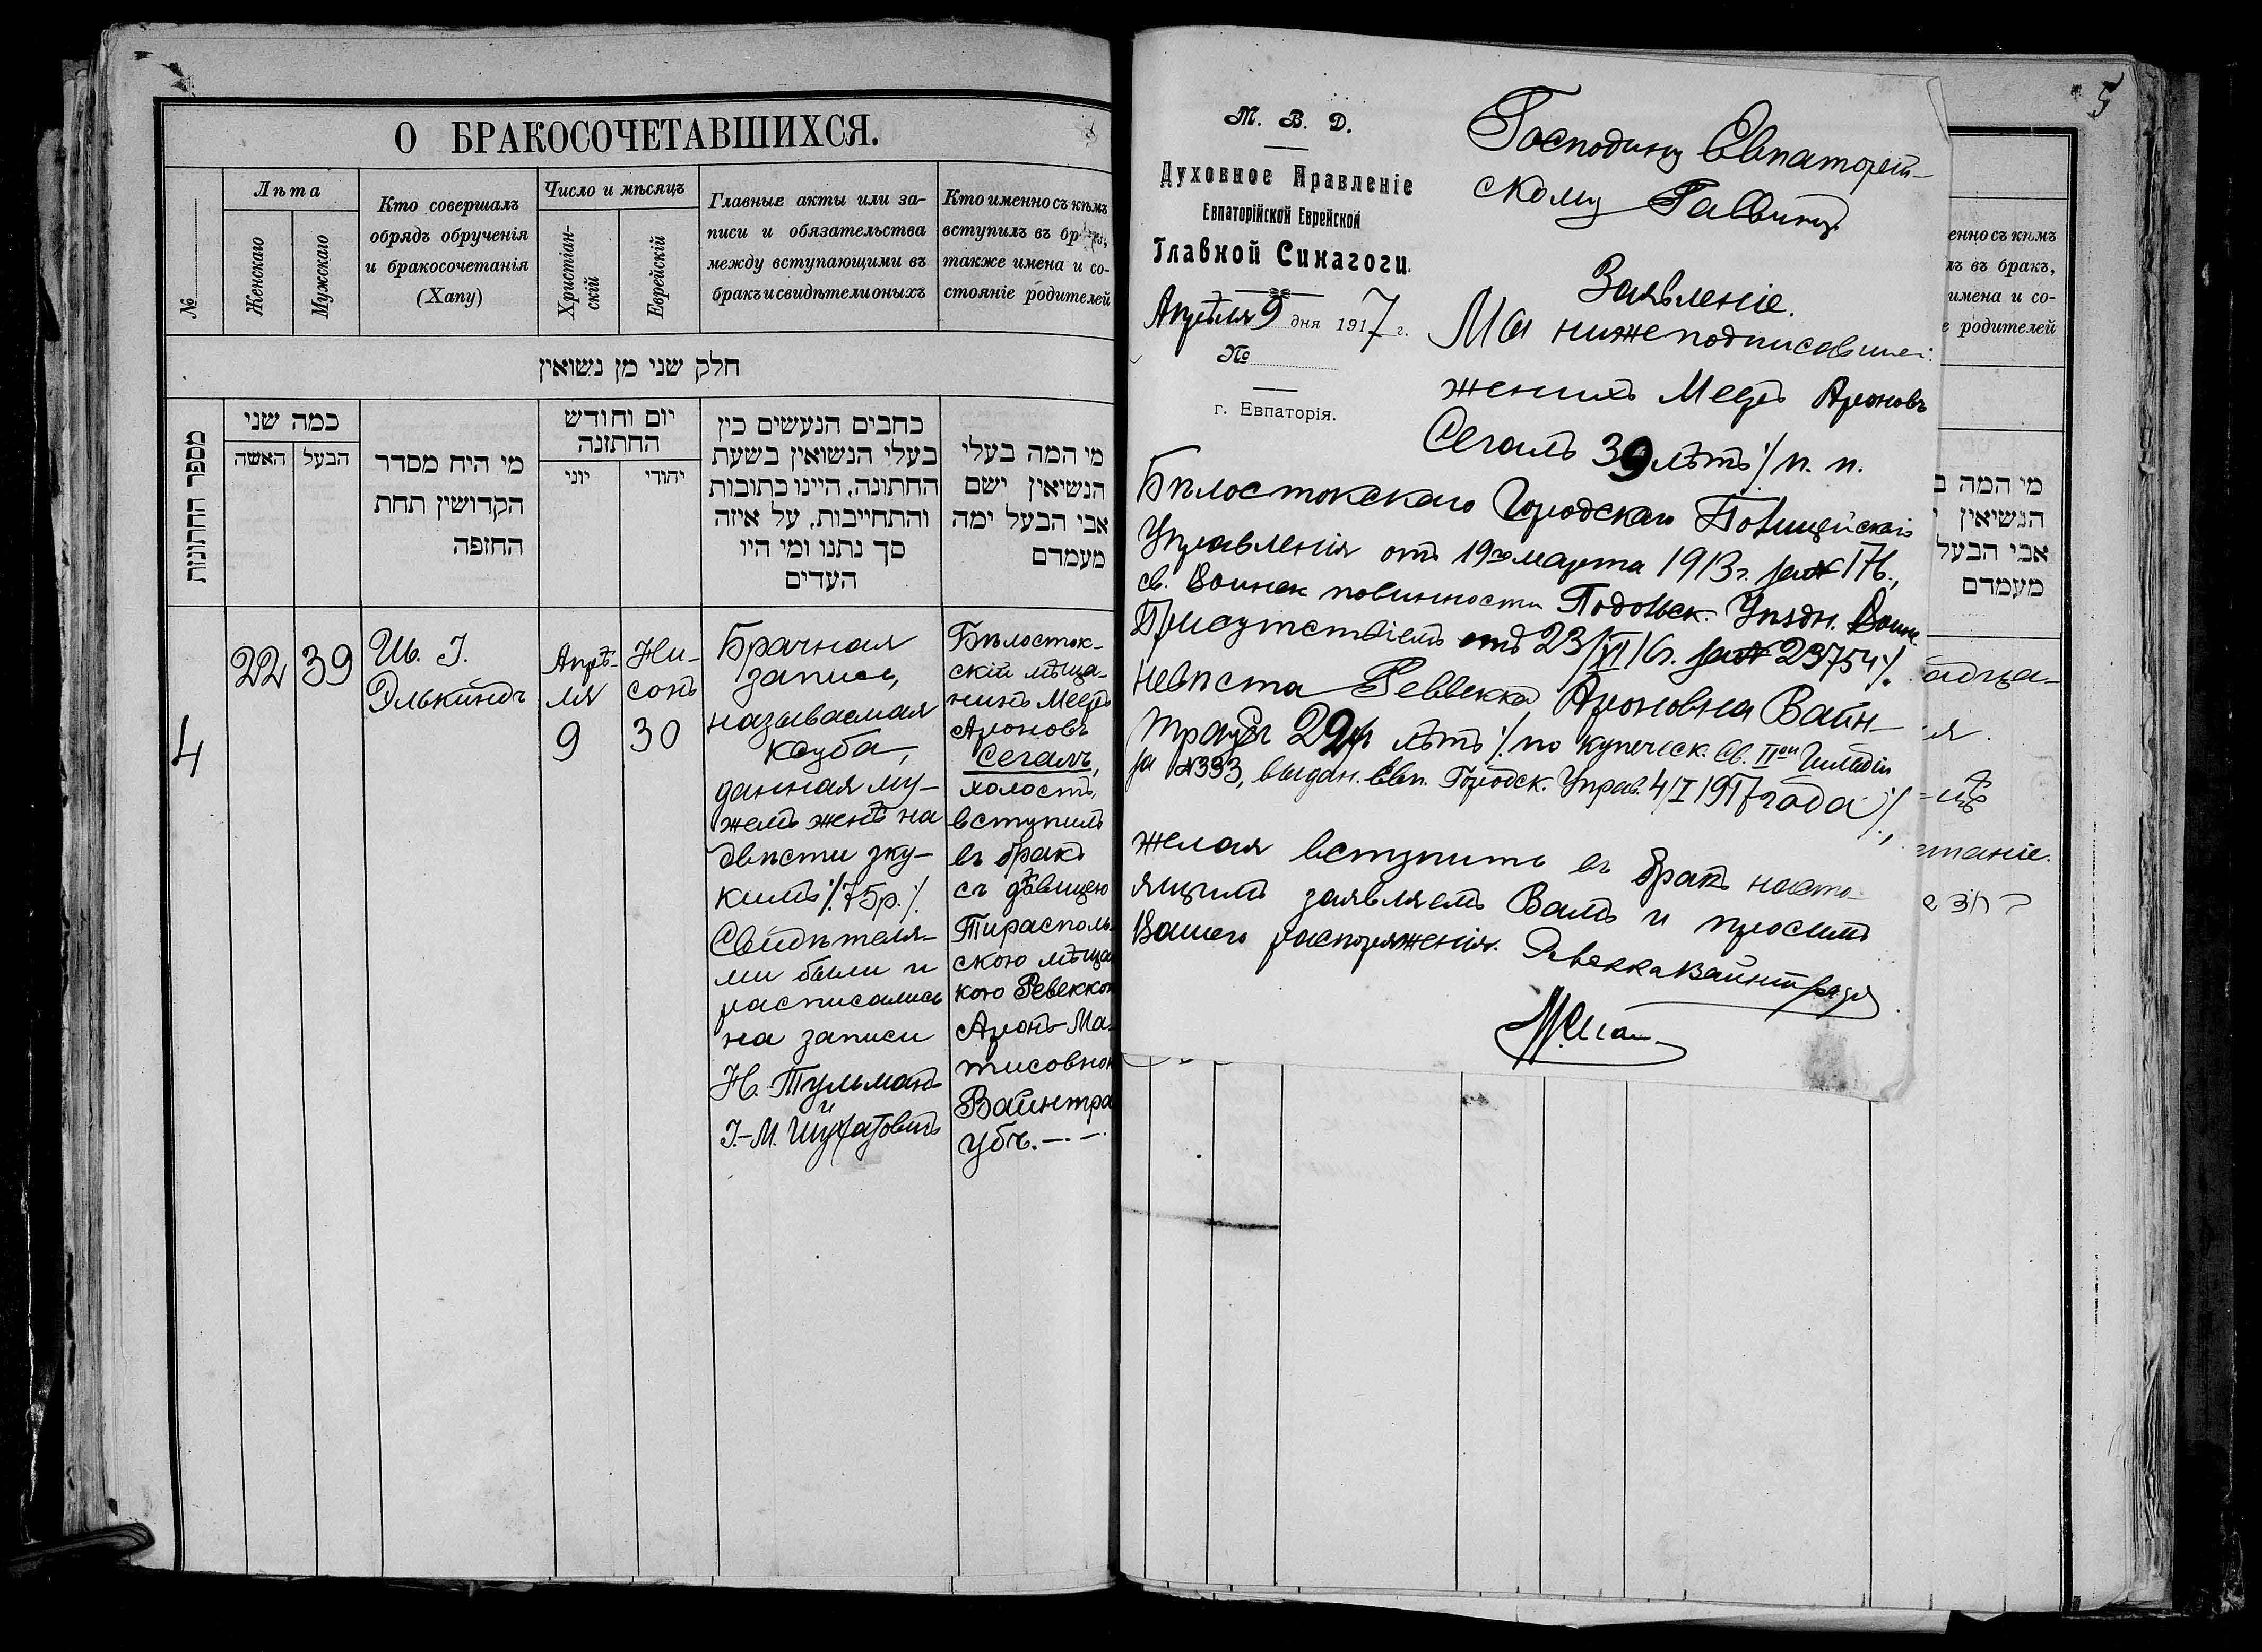 О БРАКОСОЧЕТАВШИХСЯ.
№
Лѣта
Женскаго
Мужскаго
Кто совершалъ
обрядъ обрученія
и бракосочетанія
(Хапу)
Число и мѣсяцъ
Христіан-
скій
Еврейскій
Главные акты или за-
писи и обязательства
между вступающими въ
бракъ и свидѣтели оныхъ
Кто именно съ кѣмъ
вступилъ въ бр
также имена и со-
стояніе родителей
חלק שני מן נשואין
מספר החתונות
כמה שני
האשה
הבעל
מי היח מסדר
הקדושין תחת
החופה
יום וחודש
החתונה
יוני
יהודי
כתבים הנעשים בין
בעלי הנשואין בשעת
החתונה. היינו כתובות
והתחייבות, על איזה
סך נתנו ומי היו
העדים
מי המה בעלי
הנשיאין ישם
אבי הבעל ימה
מעמדם
4
22
39
Ш. І.
Элькиндъ
Апрѣ-
ля
9
Ни-
сонъ
30
Брачная
запись,
называемая
ксуба,
данная му-
жемъ женѣ на
двѣсти зку-
кимъ /75р./
Свидѣтеля-
ми были и
расписались
на записи
Н. Тульманъ
и
Бѣлосток-
скій мѣща-
нинъ Мееръ
Ароновъ
Сегалъ,
холостъ,
вступилъ
въ бракъ
съ дѣвицею
Тирасполь-
скою мѣща
кою Ревеккою
Аронъ-Ма-
тисовною
Вайнтра
убъ. —.—.
М. В. Д.
Духовное Правленіе
Евпаторійской Еврейской
Главной Синагоги.
Апрѣля 9 дня 1917 г.
№
г. Евпаторія.
Господину Евпаторій-
скому Раввину
Заявленіе.
Мы нижеподписавшиеся:
женихъ Мееръ Ароновъ
Сегалъ 39 лѣтъ /п. п.
Бѣлостокскаго Городского Полицейскаго
Управленія отъ 19го марта 1913 г. за № 176,
св. Воинск повинности Подольск. Уѣздн. Воинск
Присутствіемъ отъ 23/XI 16 г. за № 23754/.
невѣста Реввекка Ароновна Вайн-
траубъ 22 лѣтъ /по купеческ. св. IIой Гильдіи
за №333, выдан. Евп. Городск. Управ. 4/I 1917 года /,
желая вступить въ бракъ насто-
ящимъ заявляемъ Вамъ и просимъ
Вашего распоряженія. Ревекка Вайнтраубъ
5
енно съ кѣмъ
лъ въ бракъ,
имена и со-
е родителей
מי המה ב
הנשיאין
אבי הבעל
מעמדם